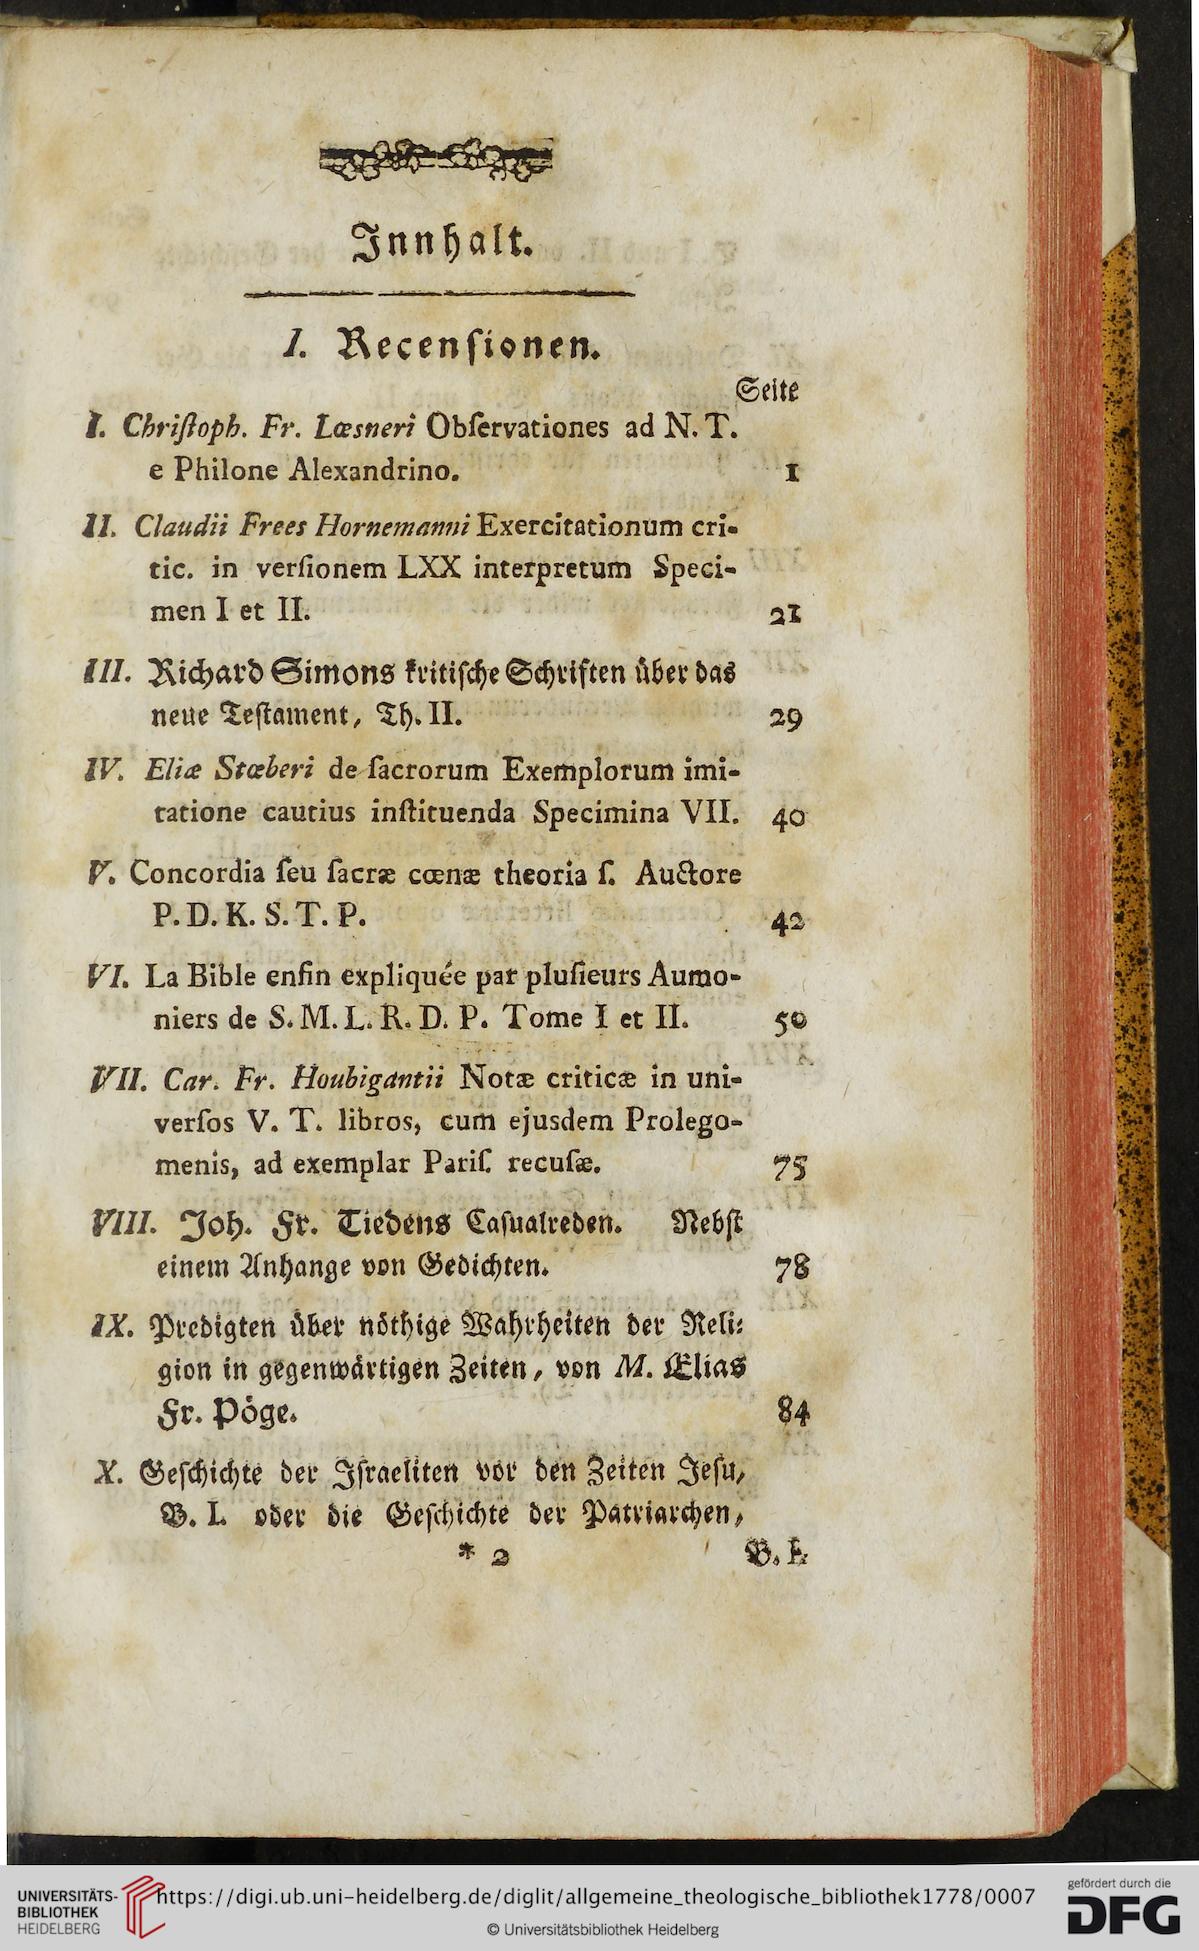 Innhalt.
I. Recensionen.
Seite
I. Chriſtoph. Fr. Lœsneri Obſervationes ad N. T.
e Philone Alexandrino. 1
II. Claudii Frees Hornemanni Exercitationum cri-
tic. in verſionem LXX interpretum Speci-
men I et II. 21
III. Richard Simons kritiſche Schriften über das
neue Teſtament, Th. II. 29
IV. Eliæ Stœberi de ſacrorum Exemplorum imi-
tatione cautius inſtituenda Specimina VII. 40
V. Concordia ſeu ſacræ cœnæ theoria ſ. Auctore
P. D. K. S. T. P. 42
VI. La Bible enfin expliquée par pluſieurs Aumo-
niers de S. M. L. R. D. P. Tome I et II. 50
VII. Car. Fr. Houbigantii Notæ criticæ in uni-
verſos V. T. libros, cum ejusdem Prolego-
menis, ad exemplar Pariſ. recuſæ. 75
VIII. Joh. Fr. Tiedens Caſualreden. Nebſt
einem Anhange von Gedichten. 78
IX. Predigten über nöthige Wahrheiten der Reli-
gion in gegenwärtigen Zeiten, von M. Elias
Fr. Pöge. 84
X. Geſchichte der Iſraeliten vor den Zeiten Jeſu,
B. I. oder die Geſchichte der Patriarchen,
* 2 B. I.
UNIVERSITÄTS-
BIBLIOTHEK
HEIDELBERG
https://digi.ub.uni-heidelberg.de/diglit/allgemeine_theologische_bibliothek1778/0007
© Universitätsbibliothek Heidelberg
gefördert durch die
DFG